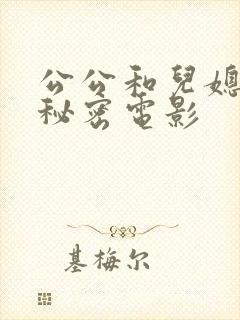 公公和兒媳
秘密電影
基梅尔